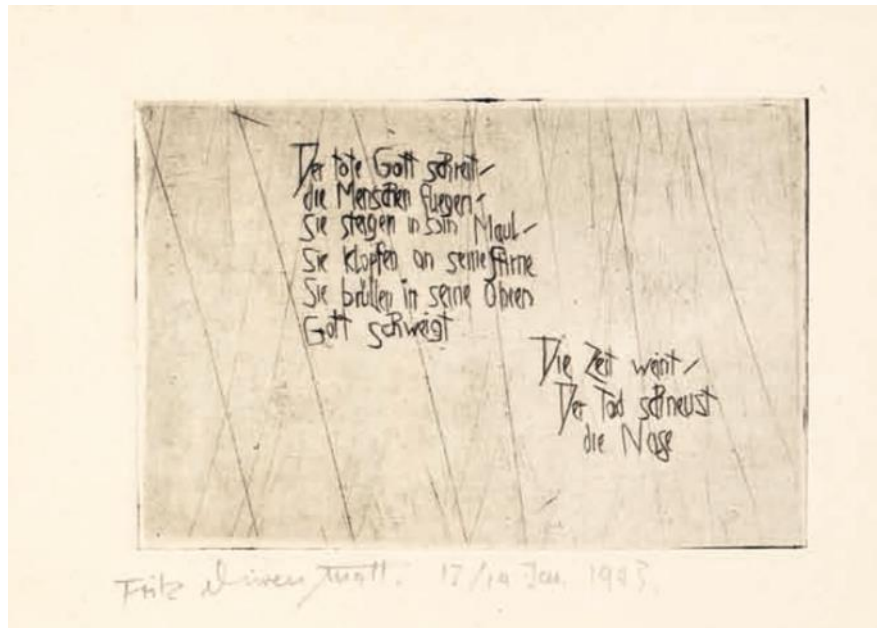 Der tote Gott schreit
die Menschen fluegen
Sie steigen in sein Maul
Sie klopfen an seine Stirne
Sie brüllen in seine Ohren
Gott schweigt
Die Zeit weint
Der Tod schneuzt
die Nase
Fritz Dürrenmatt. Jan 1943